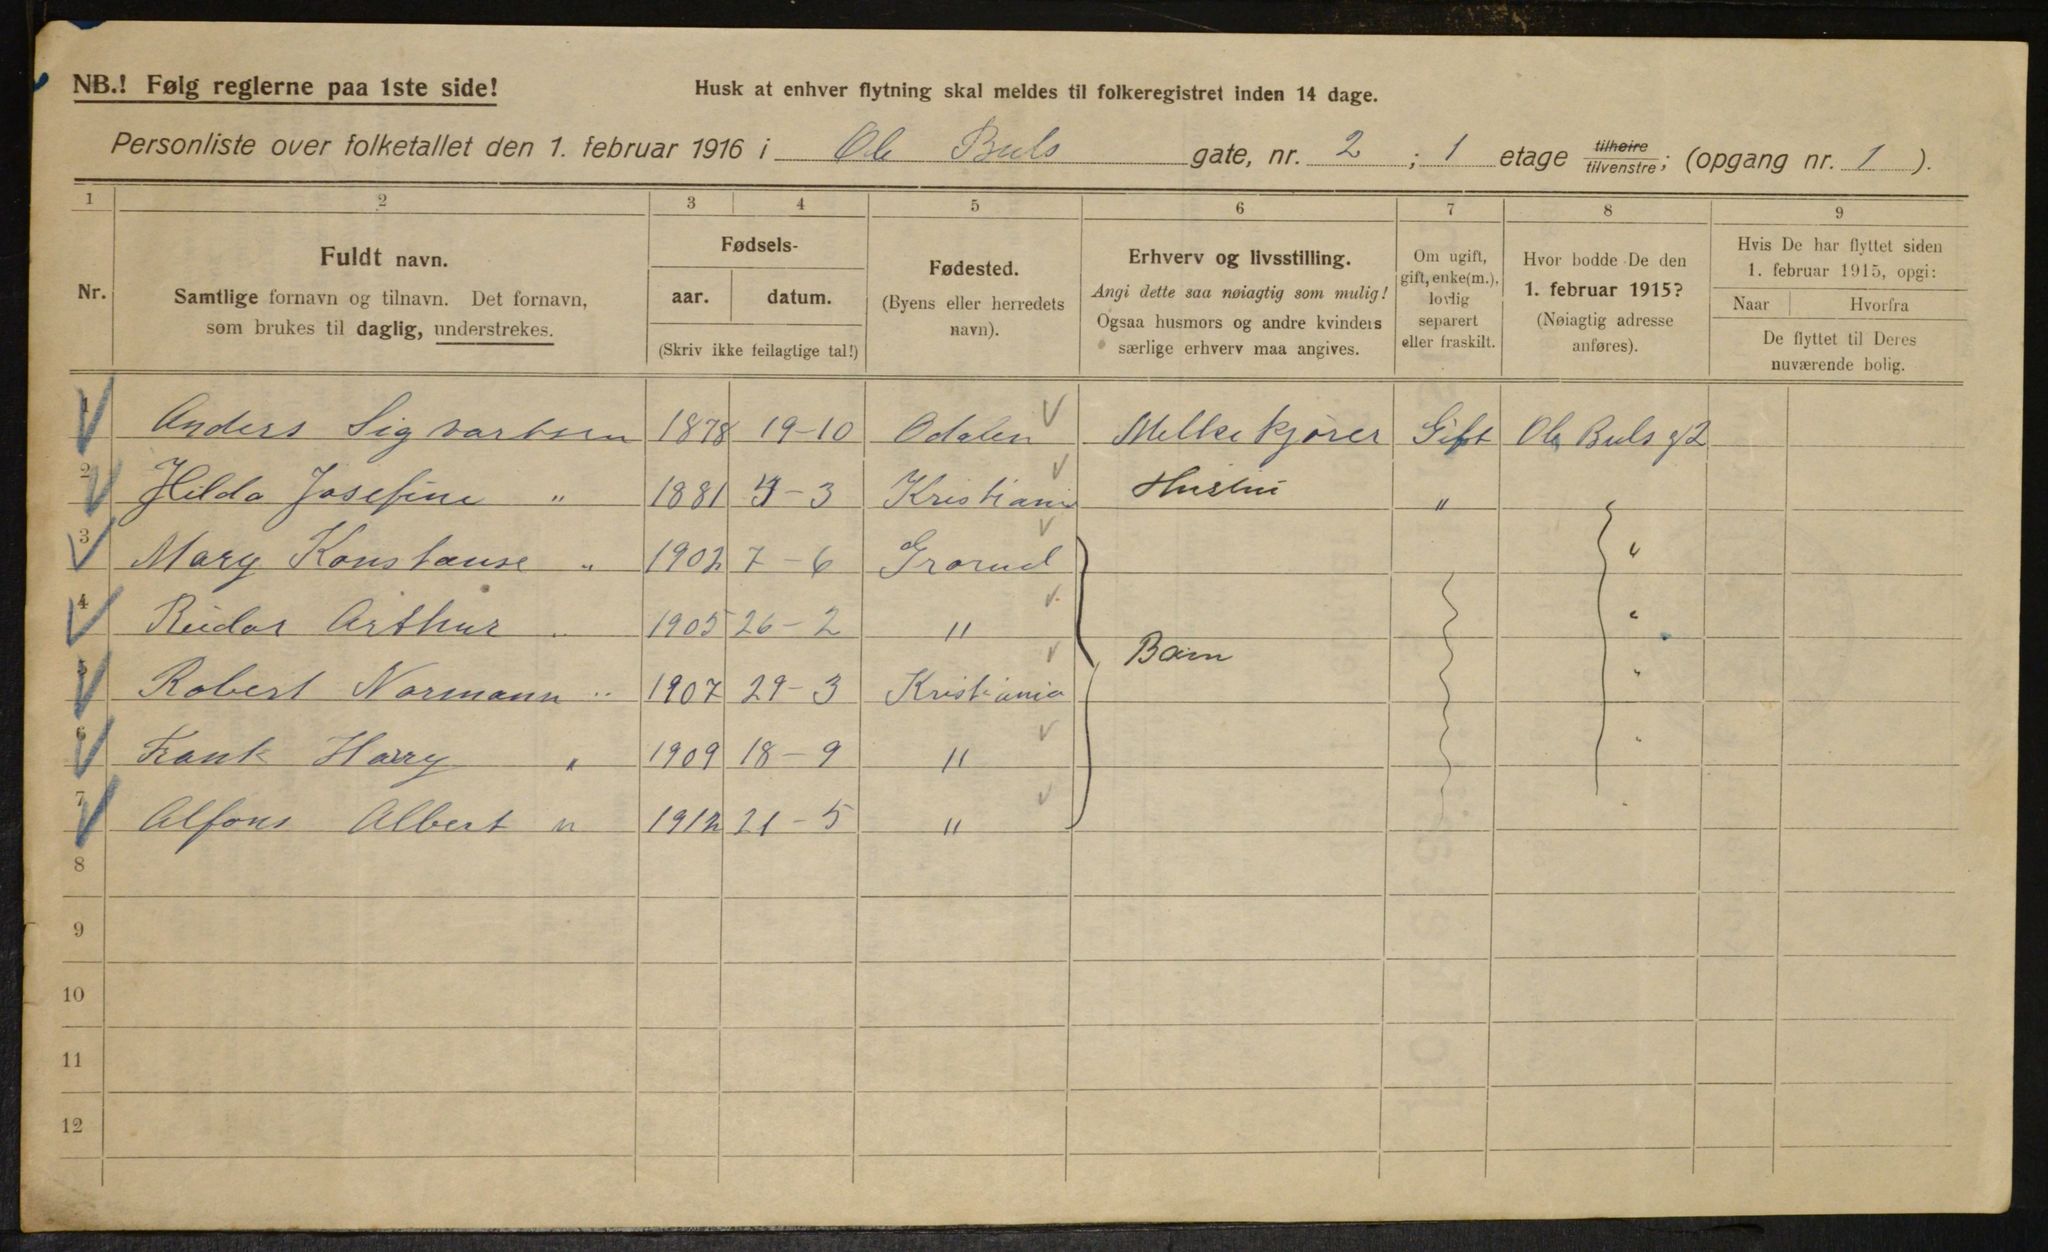 NB.! Følg reglerne paa 1ste side!
Husk at enhver flytning skal meldes til folkeregistret inden 14 dage.
Personliste over folketallet den 1. februar 1916 i Ole Buls gate, nr. 2; 1 etage tilhøire/tilvenstre; (opgang nr. 1).
1 2 3 4 5 6 7 8 9
Nr.
Fuldt navn.
Samtlige fornavn og tilnavn. Det fornavn,
som brukes til daglig, understrekes.
Fødsels-
aar. datum.
(Skriv ikke feilagtige tal!)
Fødested.
(Byens eller herredets
navn).
Erhverv og livsstilling.
Angi dette saa nøiagtig som mulig!
Ogsaa husmors og andre kvinders
særlige erhverv maa angives.
Om ugift,
gift, enke(m.),
lovlig
separert
eller fraskilt.
Hvor bodde De den
1. februar 1915?
(Nøiagtig adresse
anføres).
Hvis De har flyttet siden
1. februar 1915, opgi:
Naar Hvorfra
De flyttet til Deres
nuværende bolig.
1 Anders Sigvartsen 1878 19-10 Odalen Melkekjører Gift Ole Buls g 2
2 Hilda Josefine " 1881 4-3 Kristiania Hustru "
3 Mary Konstanse " 1902 7-6 Grorud "
4 Reidar Arthur " 1905 26-2 " "
5 Robert Normann " 1907 29-3 Kristiania Barn "
6 Frank Harry " 1909 18-9 " "
7 Alfons Albert " 1912 21-5 " "
8
9
10
11
12